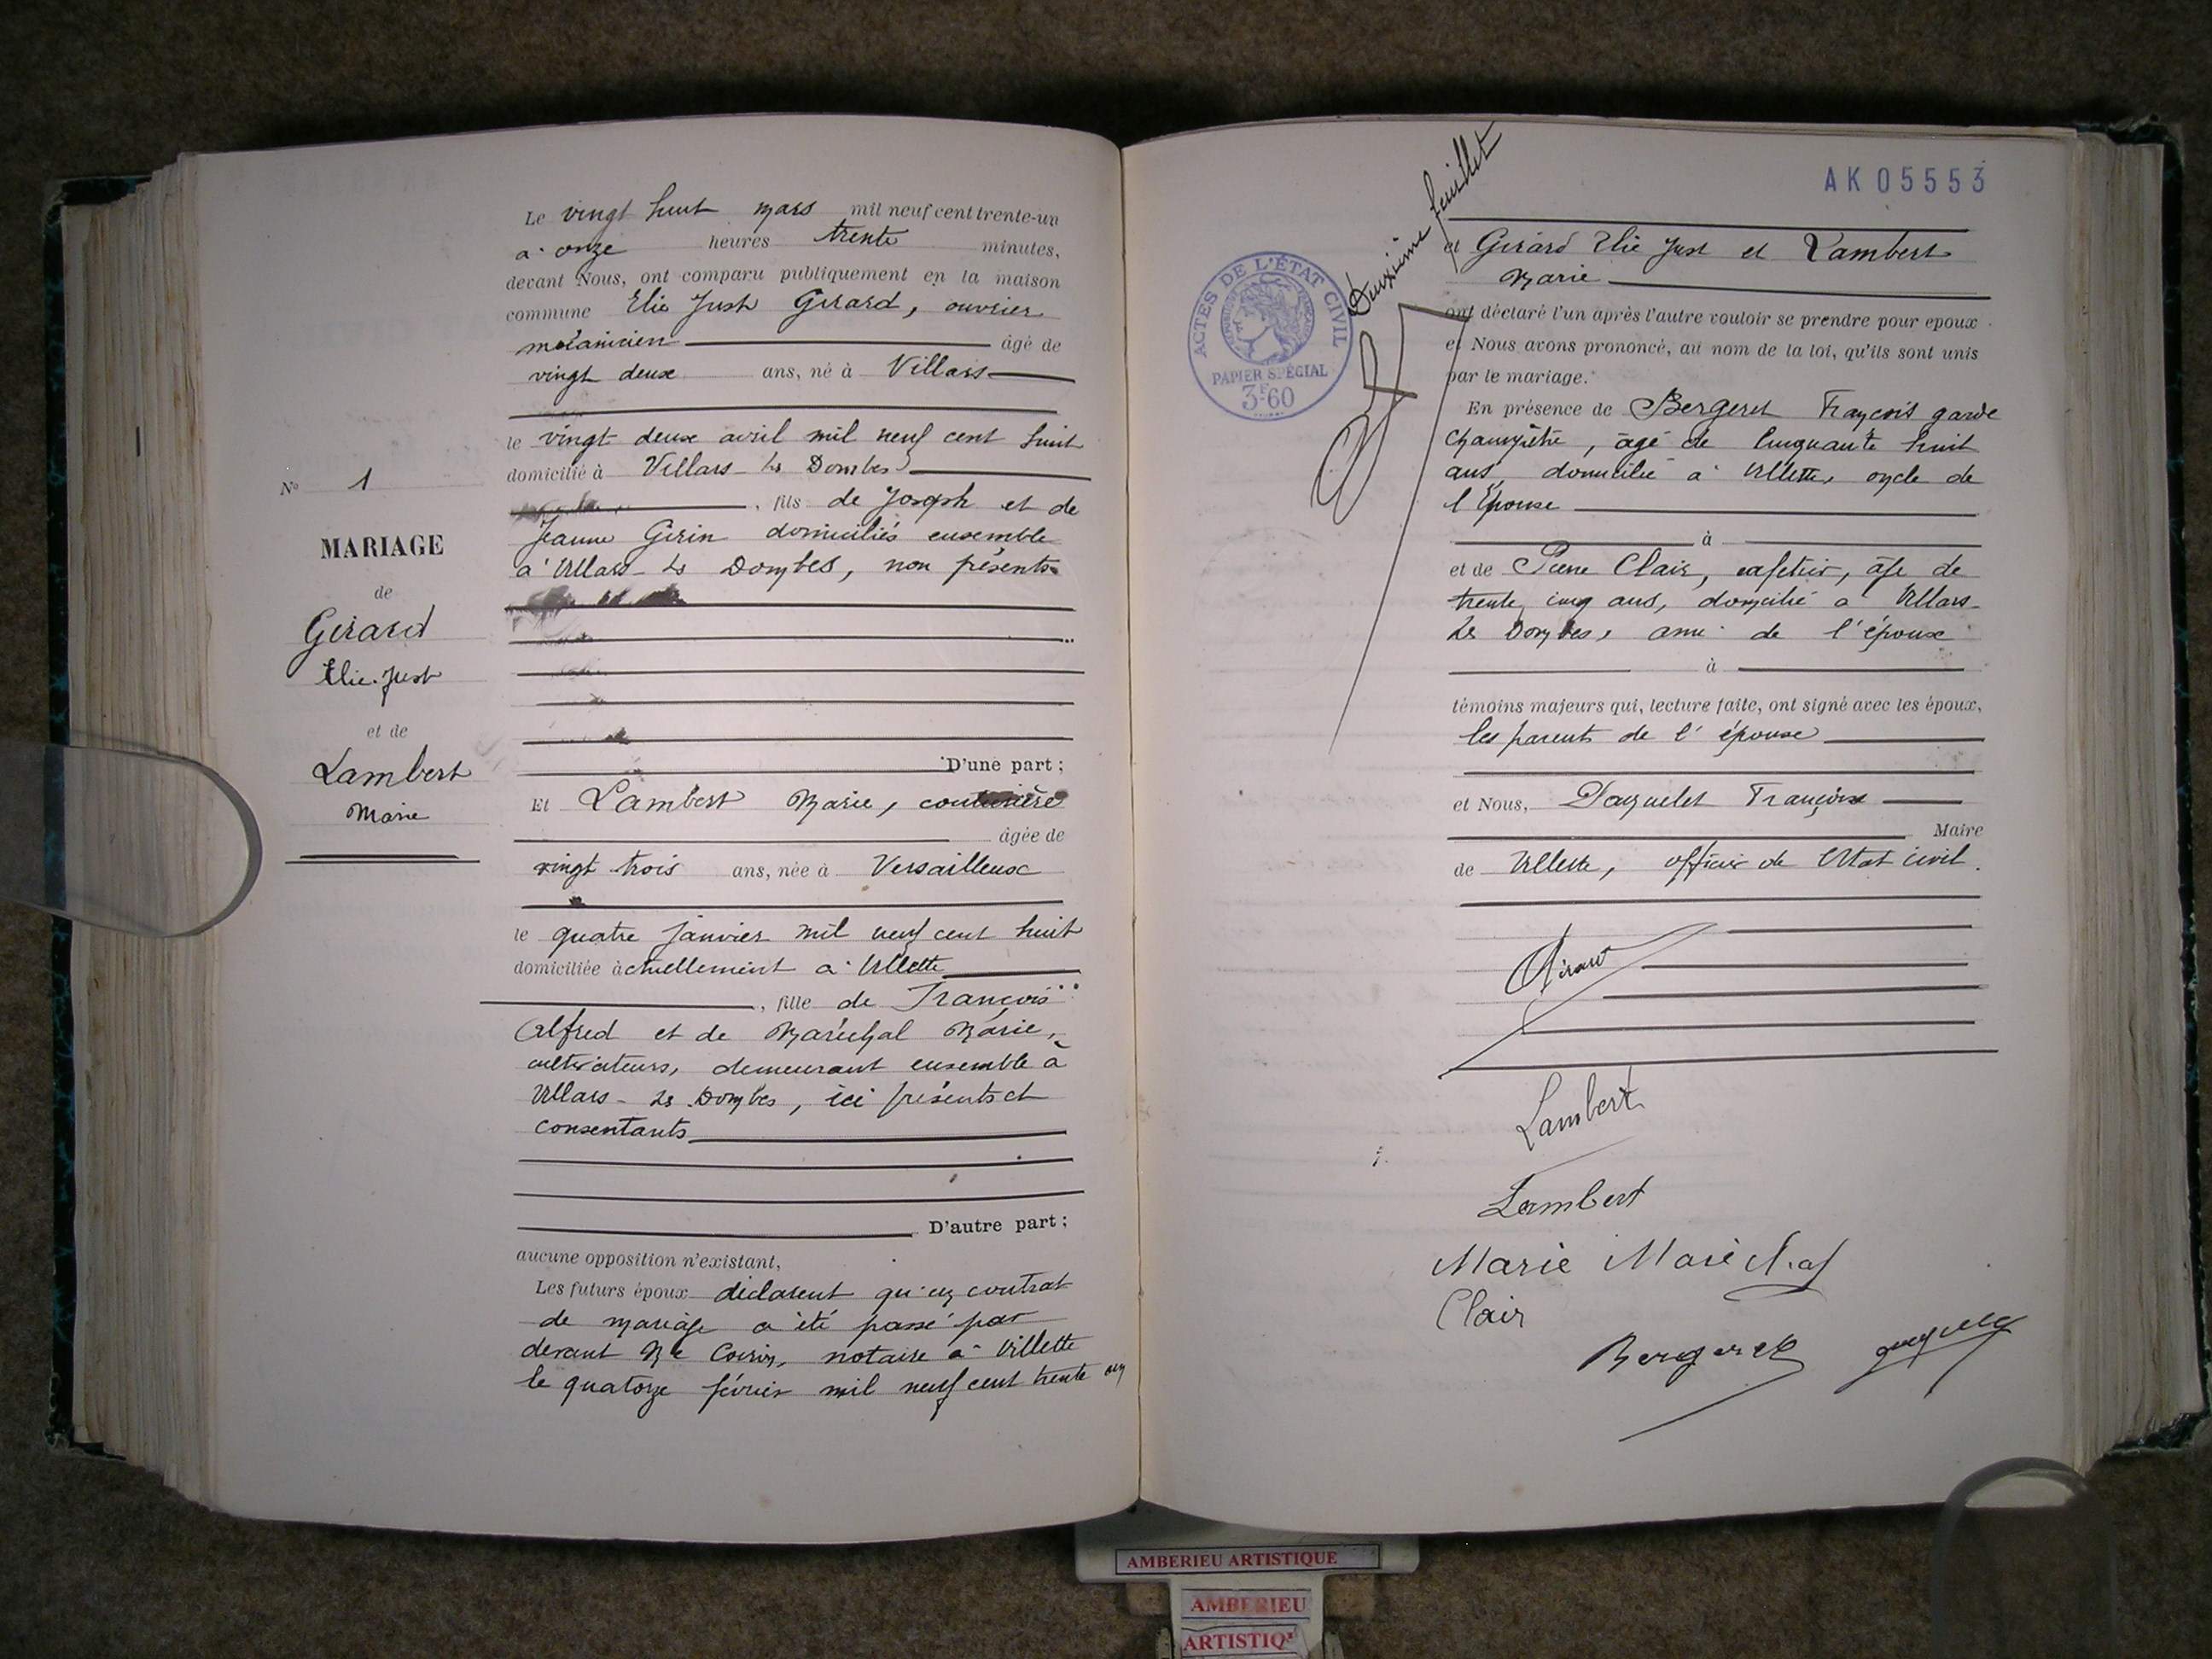 Le vingt huit mars mil neuf cent trente-un
à onze heures trente minutes,
devant Nous, ont comparu publiquement en la maison
commune Elie Just Girard, ouvrier
mécanicien âgé de
vingt deux ans, né à Villars
le vingt deux avril mil neuf cent huit
domicilié à Villars-les Dombes
, fils de Joseph et de
Jeanne Girin domiciliés ensemble
à Villars-les Dombes, non présents
D'une part;
Et Lambert Marie, couturière
âgée de
vingt trois ans, née à Versailleux
le quatre janvier mil neuf cent huit
domiciliée actuellement à Villette
, fille de François
Alfred et de Maréchal Marie,
cultivateurs, demeurant ensemble à
Villars-les Dombes, ici présents et
consentants
D'autre part;
aucune opposition n'existant,
Les futurs époux déclarent qu'un contrat
de mariage a été passé par
devant Me notaire à Villette
le quatorze février mil neuf cent trente un
N° 1
MARIAGE
de
Girard
Elie-Just
et de
Lambert
Marie
AK05553
Deuxième feuillet
ACTES DE L'ÉTAT CIVIL
PAPIER SPÉCIAL
3F60
et Girard Elie Just et Lambert
Marie
ont déclaré l'un après l'autre vouloir se prendre pour époux
et Nous avons prononcé, au nom de la loi, qu'ils sont unis
par le mariage.
En présence de Bergeret François garde
champêtre, âgé de cinquante huit
ans, domicilié à Villette, oncle de
l'épouse
à
et de Pierre Clair, cafetier, âge de
trente cinq ans, domicilié à Villars-
les Dombes, ami de l'époux
à
témoins majeurs qui, lecture faite, ont signé avec les époux,
les parents de l'épouse
et Nous, François
Maire
de Villette, officier de l'Etat civil.
Girard
Lambert
Lambert
Marie Maréchal
Clair
Bergeret
AMBERIEU ARTISTIQUE
AMBERIEU
ARTISTIQ